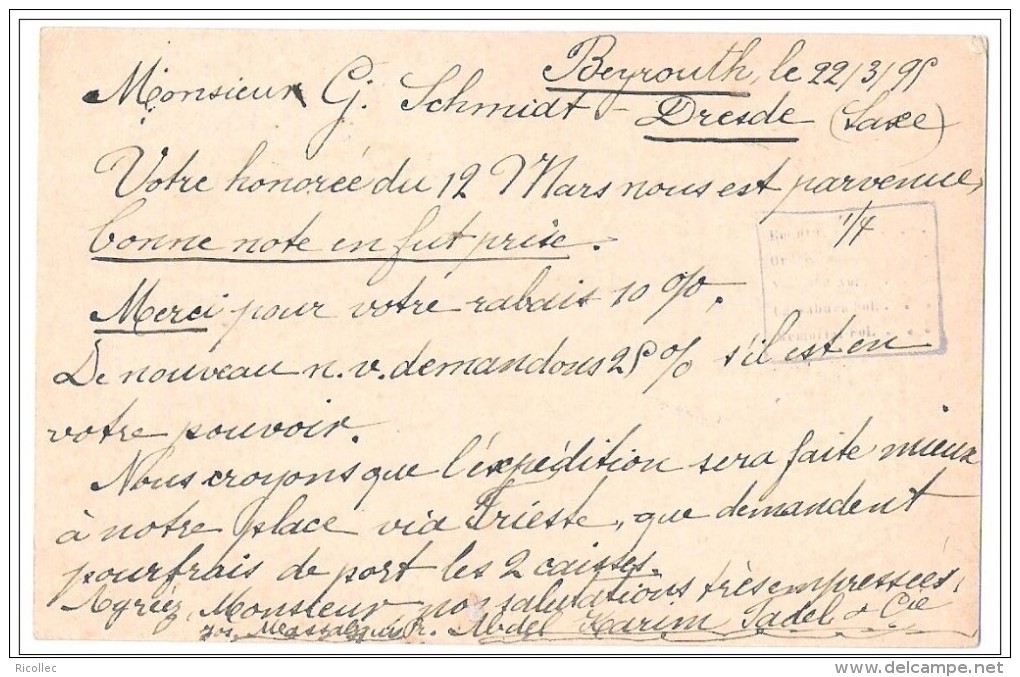 Beyrouth, le 22/3/95
Monsieur G. Schmidt - Dresde (Saxe)
Votre honorée du 12 Mars nous est parvenue,
bonne note en fut prise.
1/4
Merci pour votre rabais 10 %.
De nouveau n. v. demandons 25 % s'il est en
votre pouvoir.
Nous croyons que l'éxpédition sera faite mieux
à notre place via Trieste, que demandent
pour frais de port les 2 caisses.
Agréez, Monsieur nos salutations très empressées.
Abdel Karim Sadel & Cie
Ricollec
www.delcampe.net